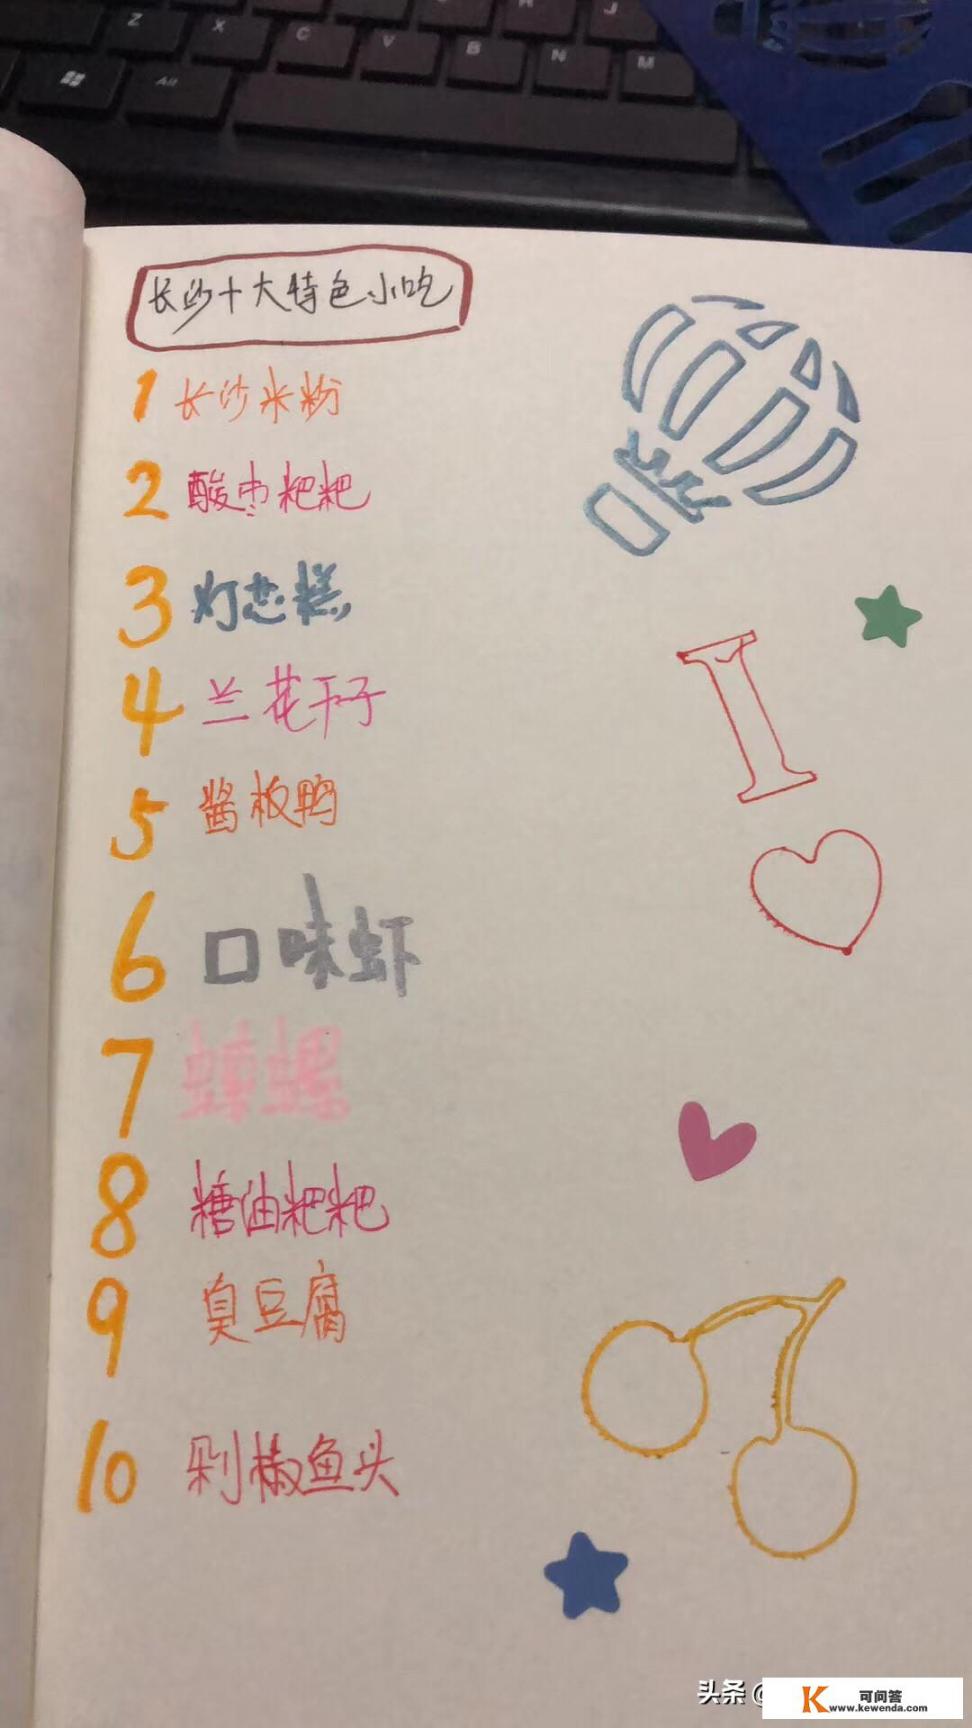 Z X C V B N M J
Alt
长沙十大特色小吃
1 长沙米粉
2 酸枣粑粑
3 灯芯糕
4 兰花干子
5 酱板鸭
6 口味虾
7
8 糖油粑粑
9 臭豆腐
10 剁椒鱼头
I
头条 @
K 可问答
www.kewenda.com